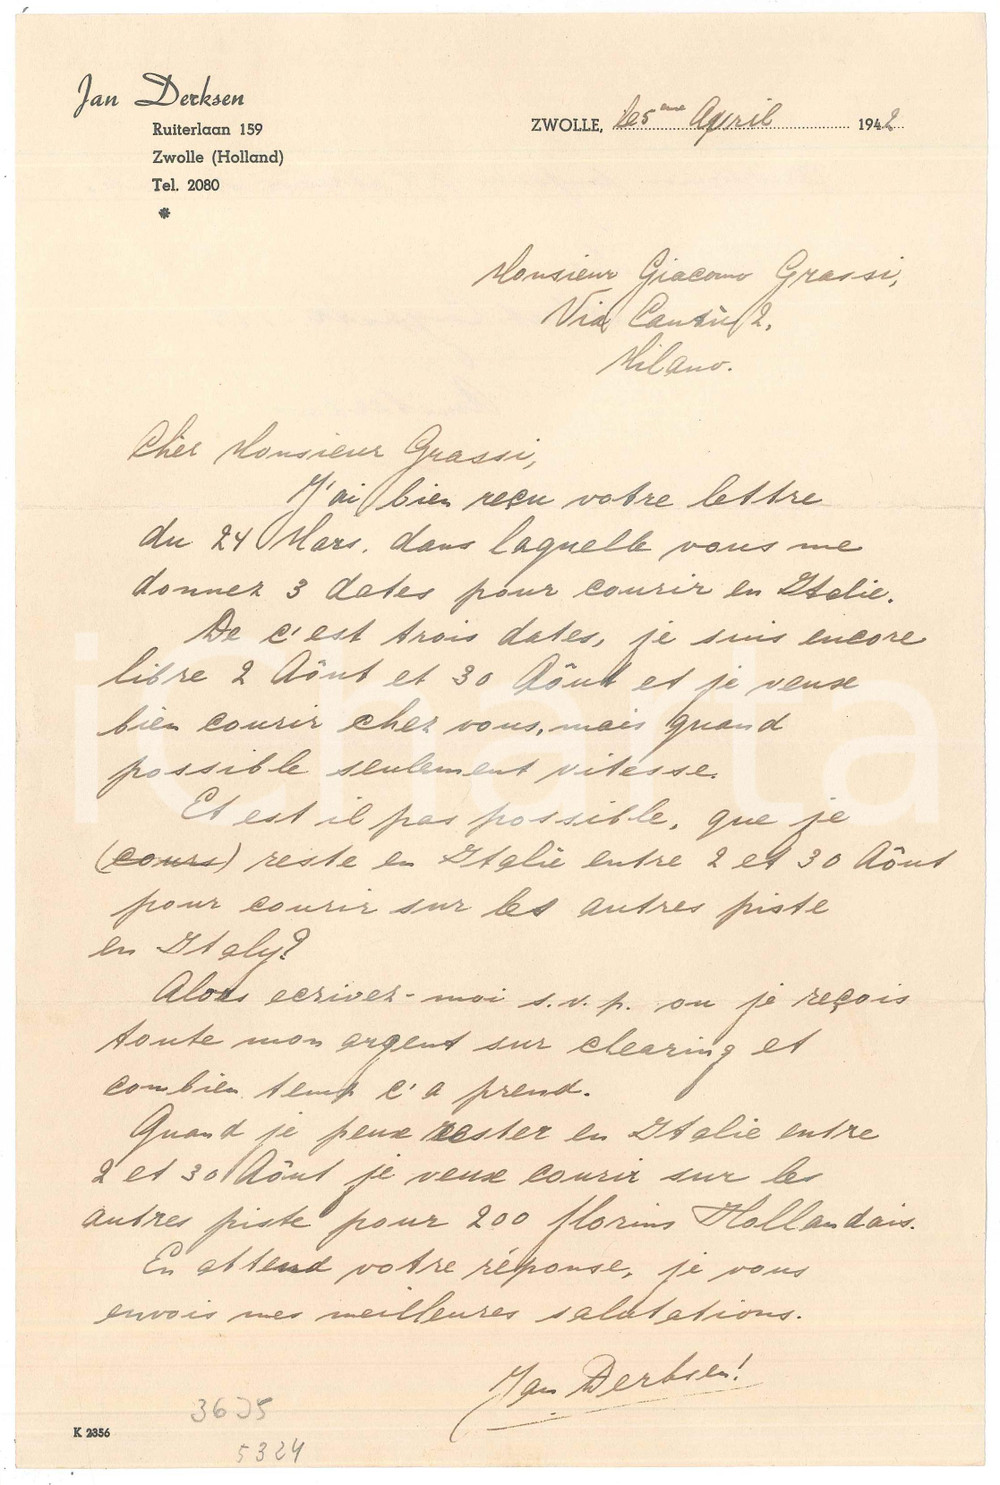 Jan Derksen
Ruiterlaan 159
Zwolle (Holland)
Tel. 2080
ZWOLLE, le 5 eme April 1942
Monsieur Giacomo Grassi,
Via Cantù 2.
Milano.
Chèr Monsieur Grassi,
J'ai bien reçu votre lettre
du 24 Mars, dans laquelle vous me
donnez 3 dates pour courir en Italie.
De c'est trois dates, je suis encore
libre 2 Aôut et 30 Aôut et je veux
bien courir chez vous, mais quand
possible seulement vitesse.
Et est il pas possible, que je
(cours) reste en Italië entre 2 et 30 Aôut
pour courir sur les autres piste
en Italy?
Alors ecrivez-moi s.v.p. ou je reçois
toute mon argent sur clearing et
combien temp c'a prend.
Quand je peux rester en Italie entre
2 et 30 Aôut je veux courir sur les
autres piste pour 200 florins Hollandais.
En attend votre réponse, je vous
envois mes meilleures salutations.
Jan Derksen!
3635
5324
K 2356
iCharta